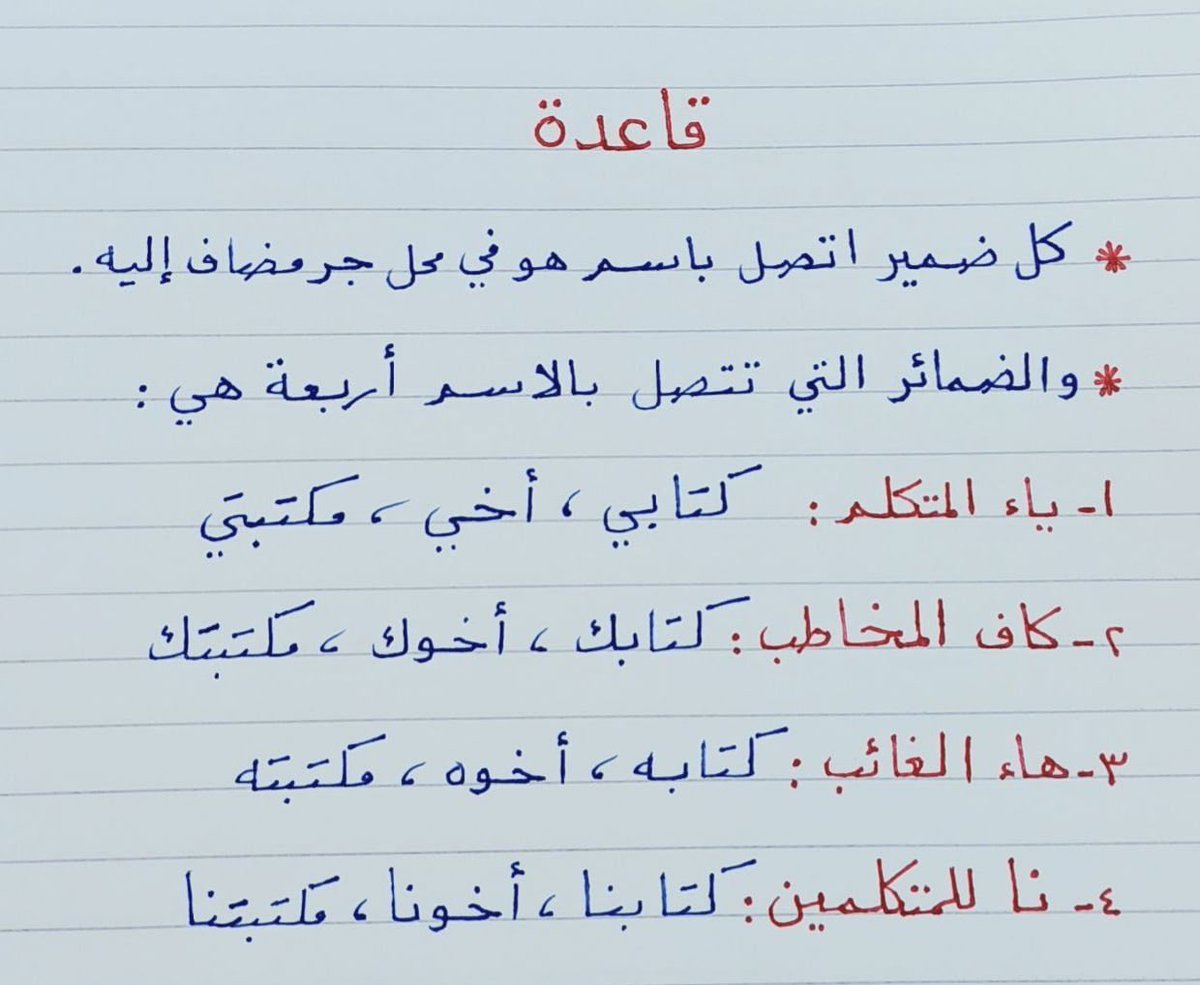 قاعدة
* كل ضمير اتصل باسم هو في محل جر مضاف إليه .
* والضمائر التي تتصل بالاسم أربعة هي :
١- ياء المتكلم : كتابي ، أخي ، مكتبتي
٢- كاف المخاطب : كتابك ، أخوك ، مكتبتك
٣- هاء الغائب : كتابه ، أخوه ، مكتبته
٤- نا للمتكلمين : كتابنا ، أخونا ، مكتبتنا